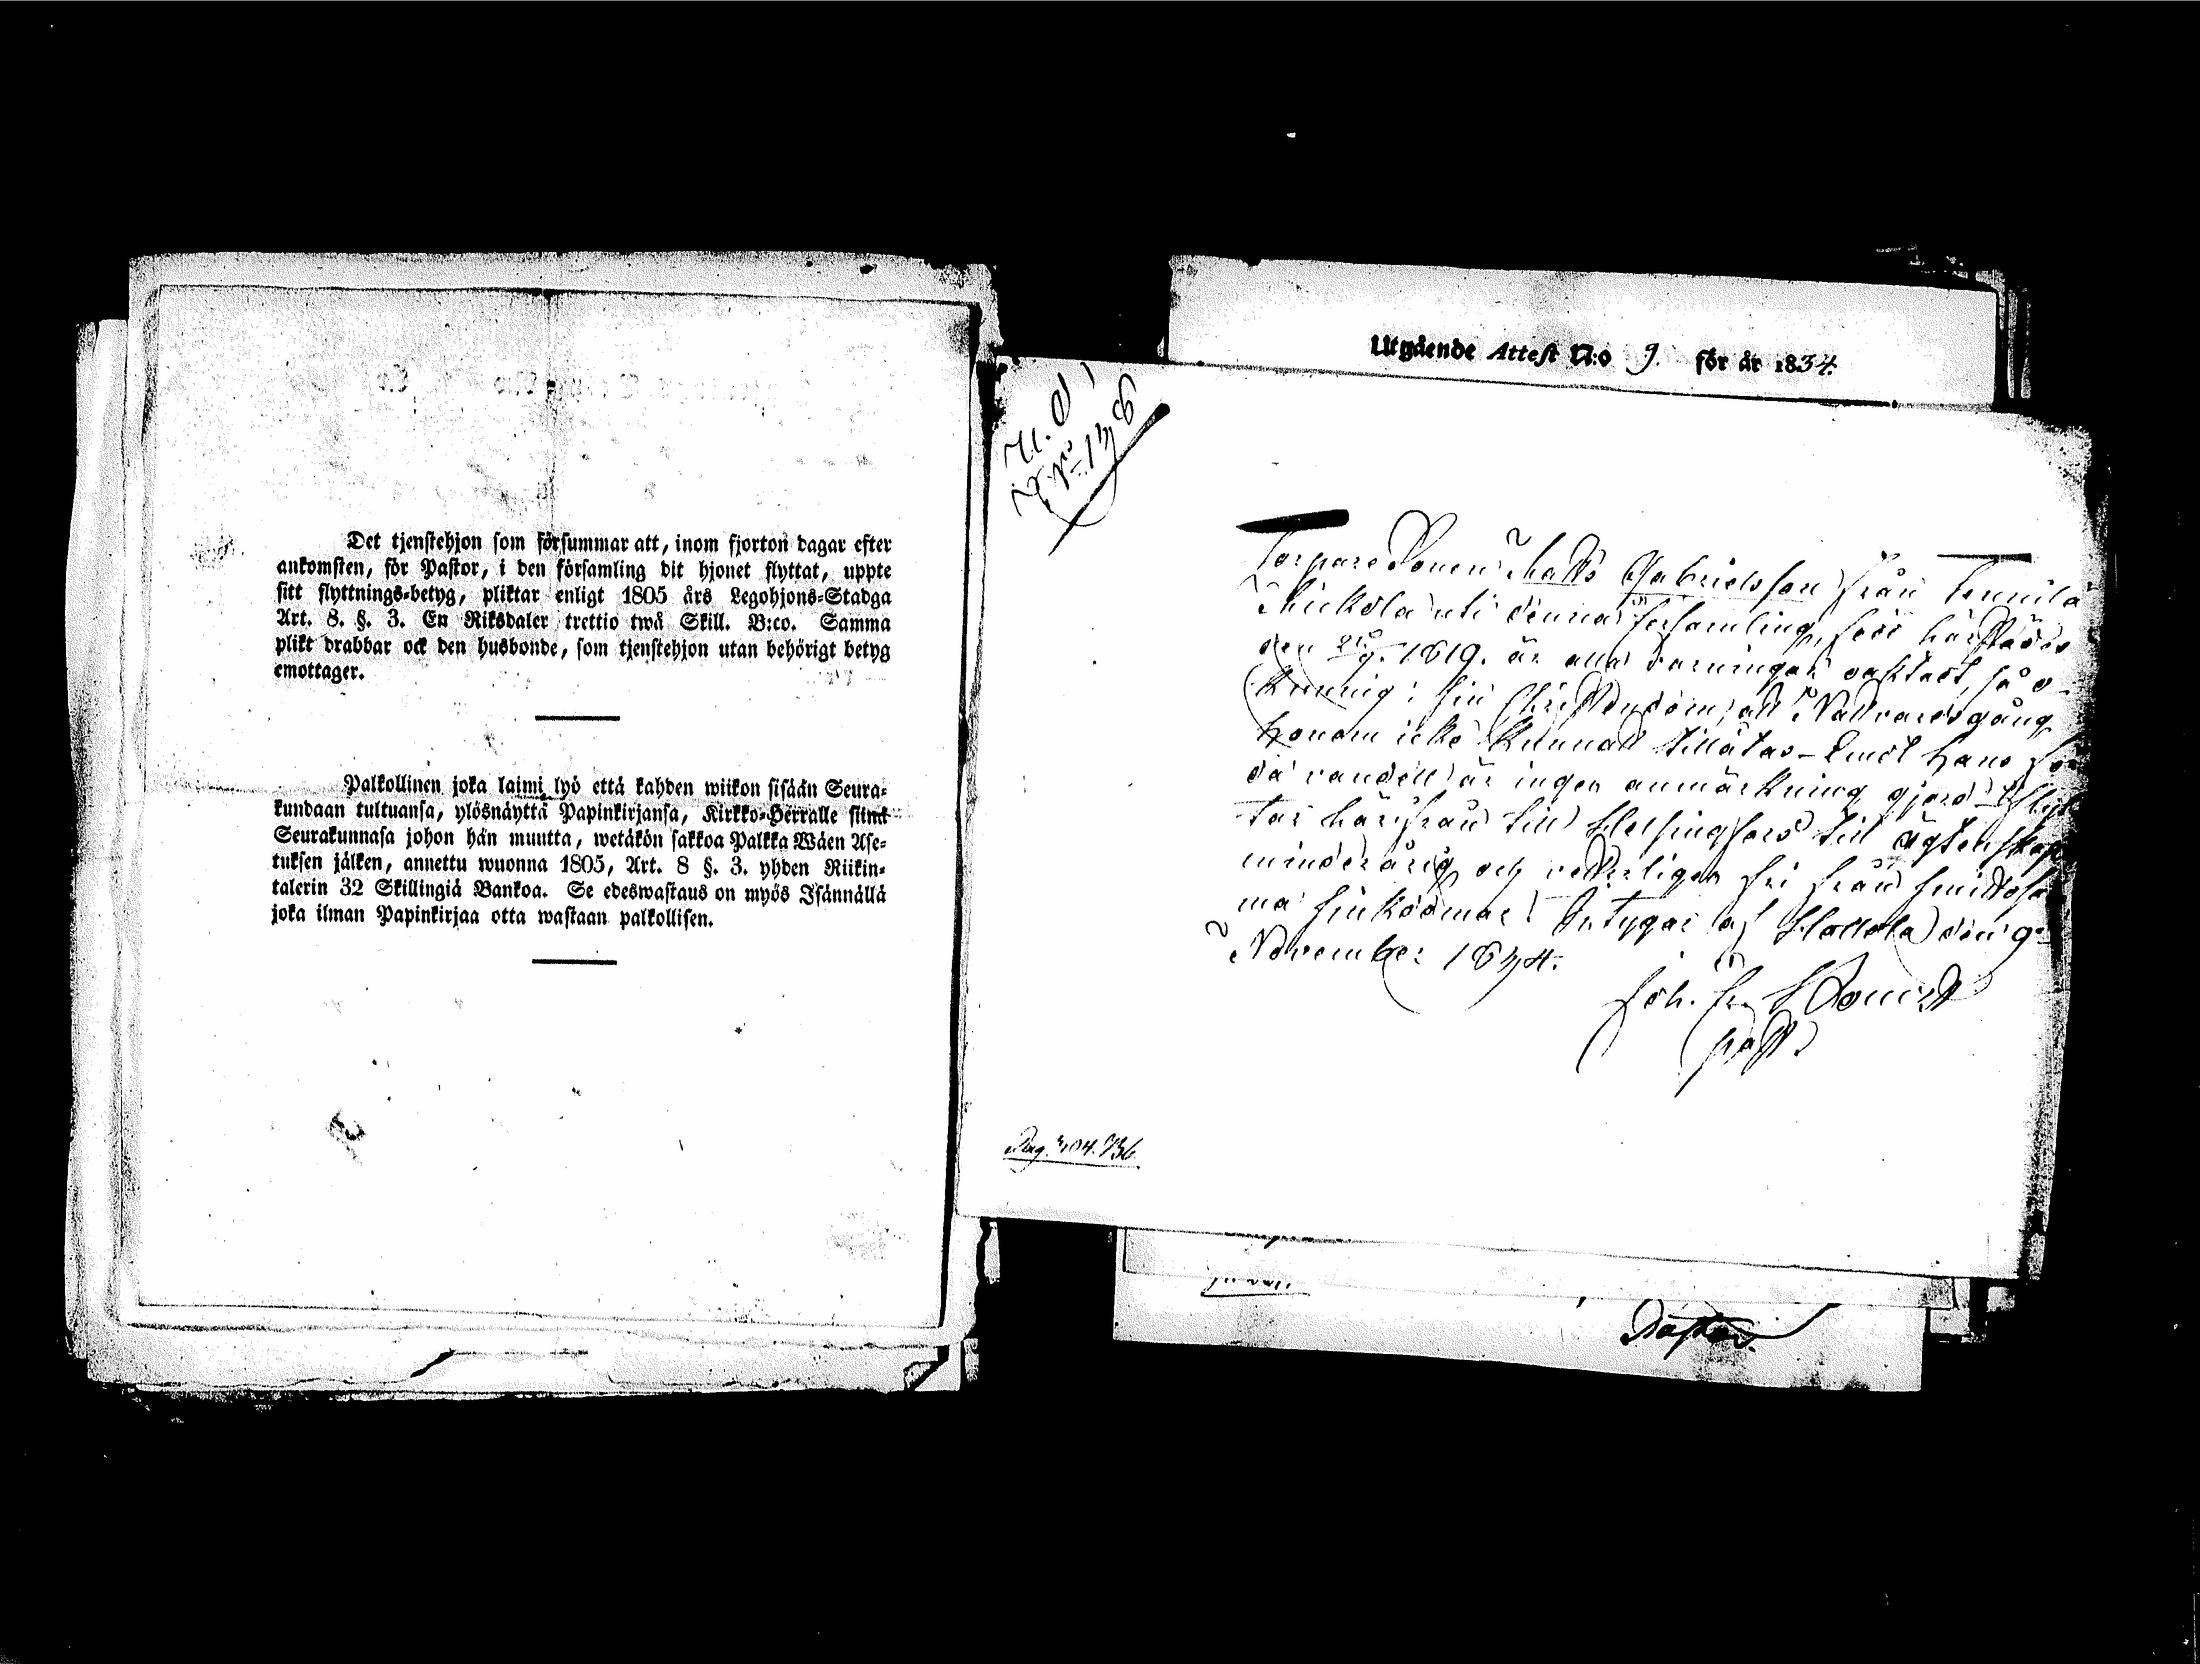 Det tjenstehjon som försummar att, inom fjorton dagar efter
ankomsten, för Pastor, i den församling dit hjonet flyttat, uppte
sitt flyttnings-betyg, pliktar enligt 1805 års Legohjons-Stadga
Art. 8. §. 3. En Riksdaler trettio twå Skill. B:co. Samma
plikt drabbar ock den husbonde, som tjenstehjon utan behörigt betyg
emottager.
Palkollinen joka laimi lyö että kahden wiikon sisään Seura-
kundaan tultuansa, ylösnäyttä Papinkirjansa, Kirkko-Herralle siinä
Seurakunnasa johon hän muutta, wetäkön sakkoa Palkka Wäen Ase-
tuksen jälken, annettu wuonna 1805, Art. 8 §. 3. yhden Riikin-
talerin 32 Skillingiä Bankoa. Se edeswastaus on myös Isännällä
joka ilman Papinkirjaa otta wastaan palkollisen.
Utgående Attest N:o 9. för år 1834.
Torpare Sonen Matts Gabrielsson från Tennilä
uti denna församling, född härstädes
den 1819. är all varningar oaktadt, så o-
kunnig i sin Christendom, att Nattvardsgång
honom icke kunnat tillåtas - Emot hans
vandel är ingen anmärkning gjord
tar härifrån till Helsingfors till ägtenskap
minderårig och fri från
ma sjukdomar. Intygar af Hollola den 9
November 1834.
Joh. Fr.
past.
Pag. 404. 736.
Pastor.